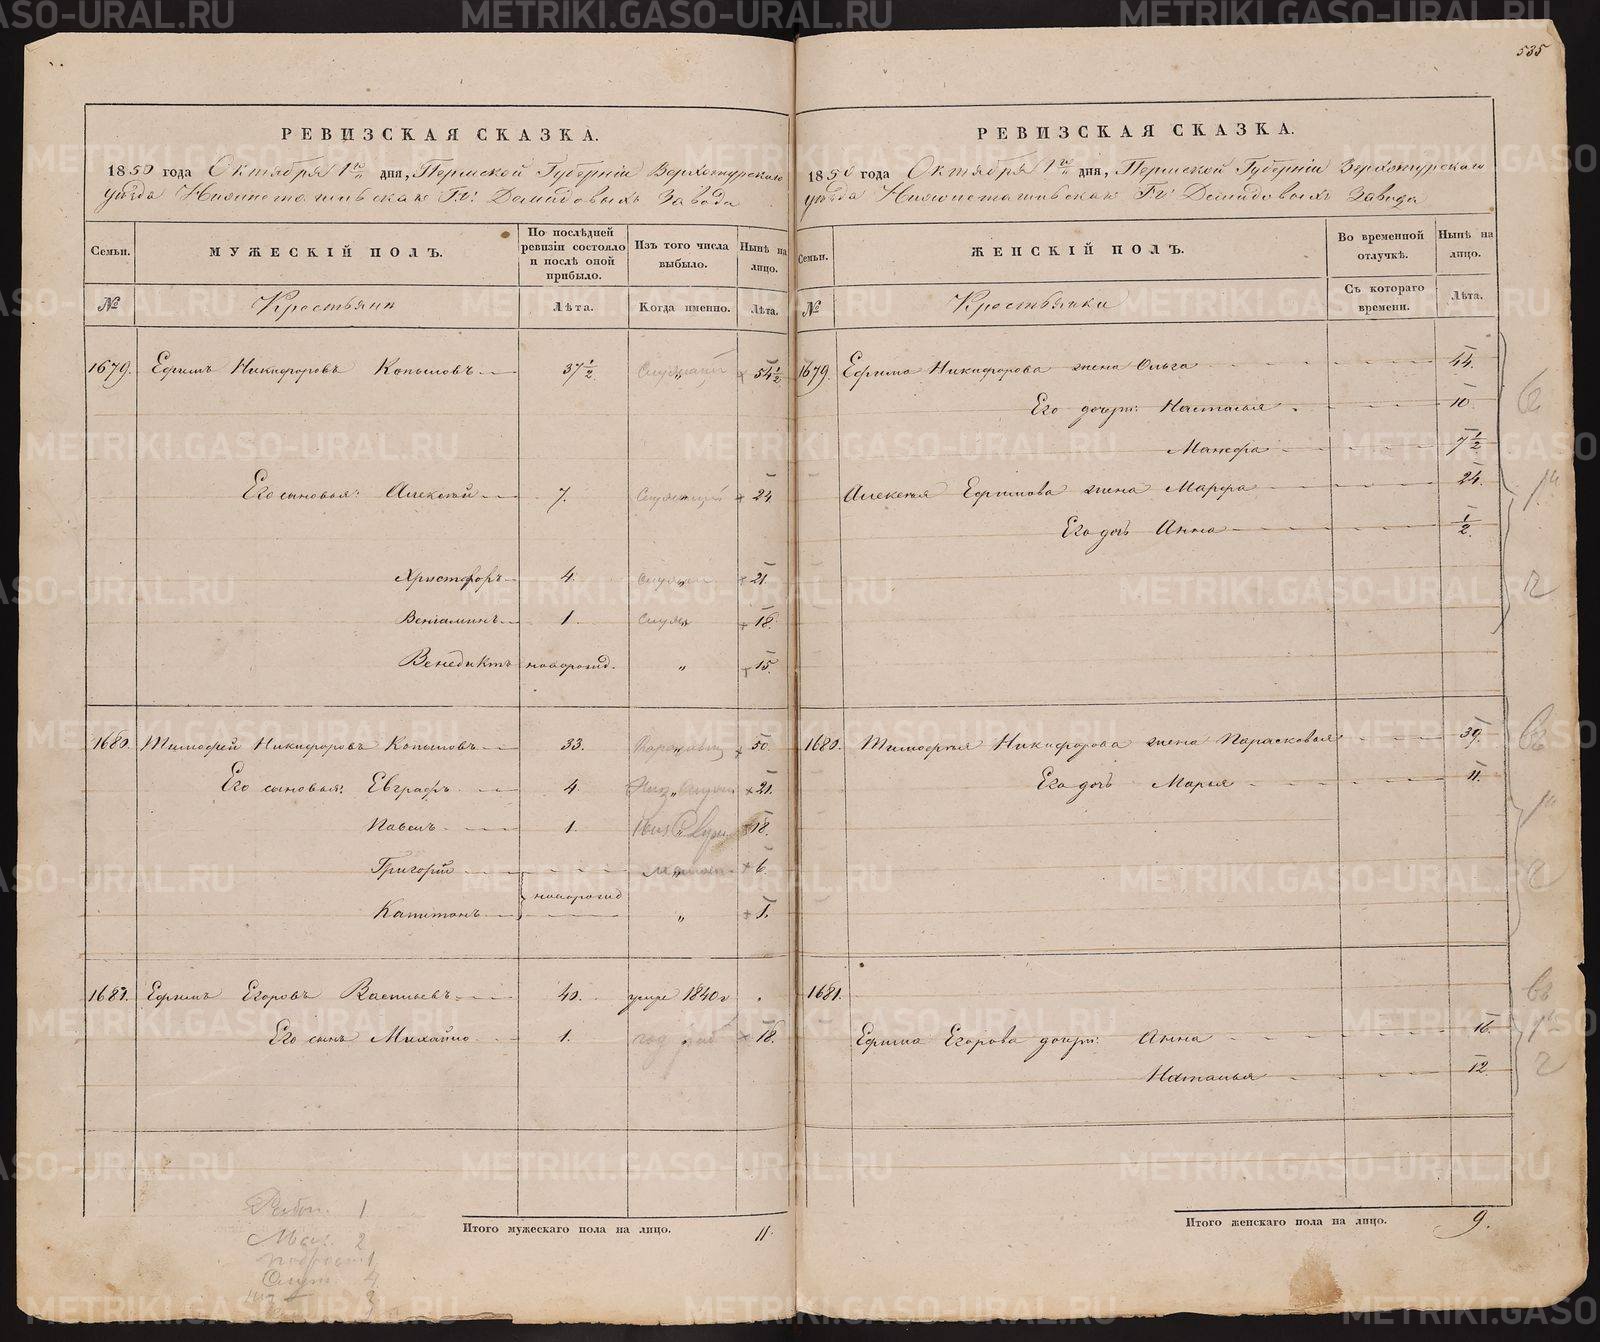 535
РЕВИЗСКАЯ СКАЗКА.
1850 года Октября 1го дня, Пермской Губерніи Верхотурскаго
уѣзда Нижнетагильскаго Гг. Демидовыхъ Завода
Семьи. МУЖЕСКІЙ ПОЛЪ. По послѣдней ревизіи состояло и послѣ оной прибыло. Изъ того числа выбыло. Нынѣ на лицо.
№ Крестьяне Лѣта. Когда именно. Лѣта.
1679. Ефимъ Никифоровъ Копыловъ 37½ 54½
Его сыновья: Алексѣй 7. 24
Христофоръ 4. 21.
Веніаминъ 1. 18.
Венедиктъ новорожд. „ 15.
1680. Тимофей Никифоровъ Копыловъ 33. 50.
Его сыновья: Евграфъ 4. 21.
Павелъ 1. 18.
Григорій 6.
новорожд
Капитонъ „ 1.
1681. Ефимъ Егоровъ Васильевъ 40. умре 1840 г
Его сынъ Михайло 1. 18.
Итого мужескаго пола на лицо. 11.
РЕВИЗСКАЯ СКАЗКА.
1850 года Октября 1го дня, Пермской Губерніи Верхотурскаго
уѣзда Нижнетагильскаго Гг. Демидовыхъ Завода
Семьи. ЖЕНСКІЙ ПОЛЪ. Во временной отлучкѣ. Нынѣ на лицо.
№ Крестьянки Съ котораго времени. Лѣта.
1679. Ефима Никифорова жена Ольга 44.
Его дочери: Настасья 10.
Манефа 7½
Алексѣя Ефимова жена Марфа 24.
Его дочь Анна ½.
1680. Тимофея Никифорова жена Парасковья 39.
Его дочь Марья 11.
1681.
Ефима Егорова дочери: Анна 16.
Наталья 12.
Итого женскаго пола на лицо. 9.
METRIKI.GASO-URAL.RU